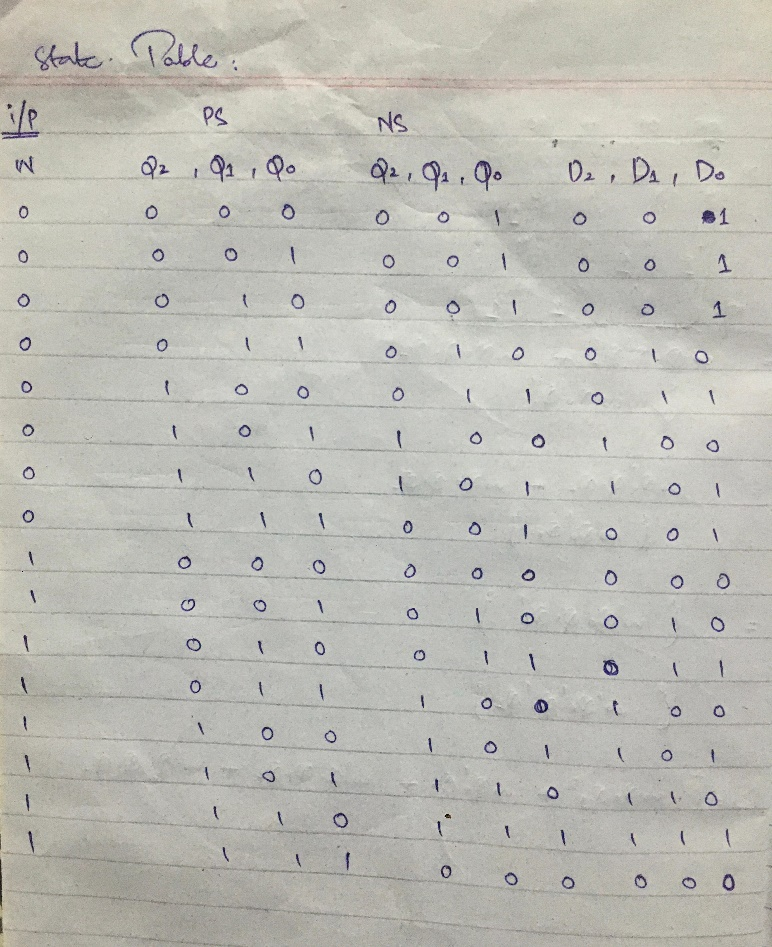 State Table:
i/P PS NS
W Q2 , Q1 , Q0 Q2 , Q1 , Q0 D2 , D1 , D0
0 0 0 0 0 0 1 0 0 1
0 0 0 1 0 0 1 0 0 1
0 0 1 0 0 0 1 0 0 1
0 0 1 1 0 1 0 0 1 0
0 1 0 0 0 1 1 0 1 1
0 1 0 1 1 0 0 1 0 0
0 1 1 0 1 0 1 1 0 1
0 1 1 1 0 0 1 0 0 1
1 0 0 0 0 0 0 0 0 0
1 0 0 1 0 1 0 0 1 0
1 0 1 0 0 1 1 0 1 1
1 0 1 1 1 0 0 1 0 0
1 1 0 0 1 0 1 1 0 1
1 1 0 1 1 1 0 1 1 0
1 1 1 0 1 1 1 1 1 1
1 1 1 1 0 0 0 0 0 0